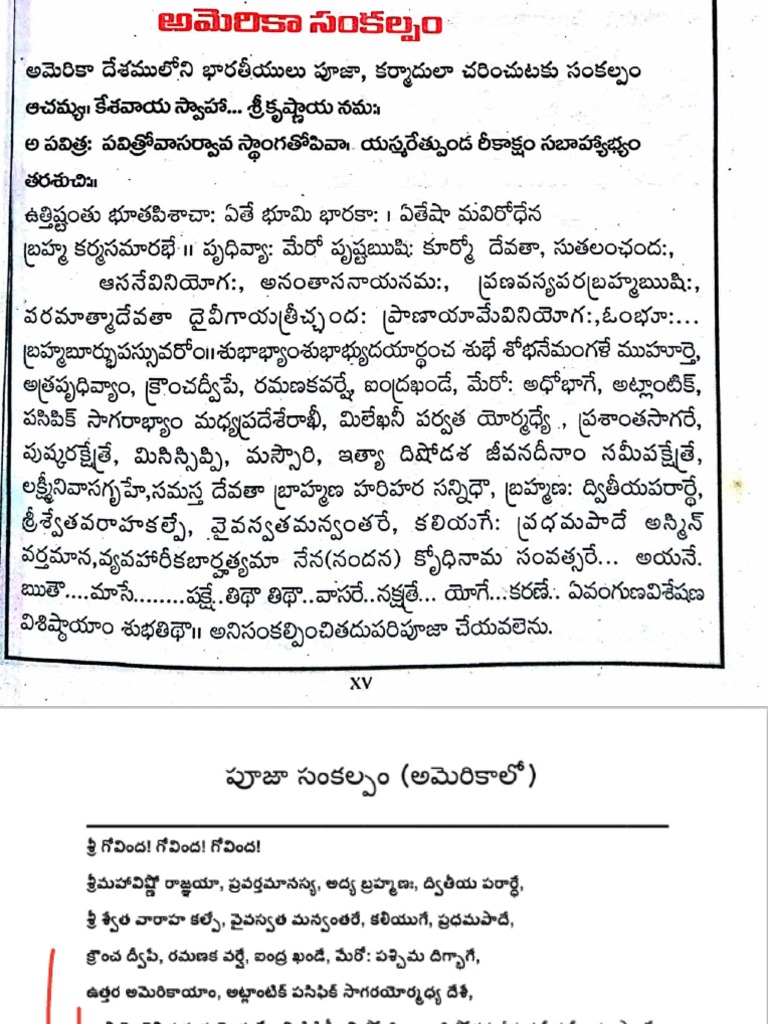 అమెరికా సంకల్పం
అమెరికా దేశములోని భారతీయులు పూజా, కర్మాదులా చరించుటకు సంకల్పం
ఆచమ్య॥ కేశవాయ స్వాహా... శ్రీకృష్ణాయ నమః॥
అ పవిత్ర: పవిత్రోవాసర్వావ స్థాంగతోపివా। యస్మరేత్పుండ రీకాక్షం సబాహ్యాభ్యం
తరశుచిః॥
ఉత్తిష్టంతు భూతపిశాచా: ఏతే భూమి భారకా: । ఏతేషా మవిరోధేన
బ్రహ్మ కర్మసమారభే ॥ పృధివ్యా: మేరో పృష్టఋషి: కూర్మో దేవతా, సుతలంఛంద:,
ఆసనేవినియోగ:, అనంతాసనాయనమ:, ప్రణవస్యపరబ్రహ్మఋషి:,
పరమాత్మాదేవతా దైవీగాయత్రీచ్ఛంద: ప్రాణాయామేవినియోగ:,ఓంభూ:...
బ్రహ్మబూర్భుపస్సువరోం॥శుభాభ్యాంశుభాభ్యుదయార్థంచ శుభే శోభనేమంగళే ముహూర్తె,
అత్రపృధివ్యాం, క్రౌంచద్వీపే, రమణకవర్షే, ఐంద్రఖండే, మేరో: అధోభాగే, అట్లాంటిక్,
పసిపిక్ సాగరాభ్యాం మధ్యప్రదేశేరాఖీ, మిలేఖనీ పర్వత యోర్మధ్యే , ప్రశాంతసాగరే,
పుష్కరక్షేత్రే, మిసిస్సిప్పి, మస్సౌరి, ఇత్యా దిషోడశ జీవనదీనాం సమీపక్షేత్రే,
లక్ష్మీనివాసగృహే,సమస్త దేవతా బ్రాహ్మణ హరిహర సన్నిధౌ, బ్రహ్మణ: ద్వితీయపరార్థే,
శ్రీశ్వేతవరాహకల్పే, వైవస్వతమన్వంతరే, కలియుగే: ప్రధమపాదే అస్మిన్
వర్తమాన,వ్యవహారీకబార్హత్యమా నేన(నందన) క్రోధినామ సంవత్సరే... అయనే.
ఋతౌ....మాసే........పక్షే..తిథౌ తిథౌ..వాసరే..నక్షత్రే... యోగే...కరణే.. ఏవంగుణవిశేషణ
విశిష్ఠాయాం శుభతిథౌ॥ అనిసంకల్పించితదుపరిపూజా చేయవలెను.
XV
పూజా సంకల్పం (అమెరికాలో)
శ్రీ గోవింద! గోవింద! గోవింద!
శ్రీమహావిష్ణో రాజ్ఞయా, ప్రవర్తమానస్య, అద్య బ్రహ్మణః, ద్వితీయ పరార్ధే,
శ్రీ శ్వేత వారాహ కల్పే, వైవస్వత మన్వంతరే, కలియుగే, ప్రధమపాదే,
క్రౌంచ ద్వీపే, రమణక వర్షే, ఐంద్ర ఖండే, మేరో: పశ్చిమ దిగ్భాగే,
ఉత్తర అమెరికాయాం, అట్లాంటిక్ పసిఫిక్ సాగరయోర్మధ్య దేశే,